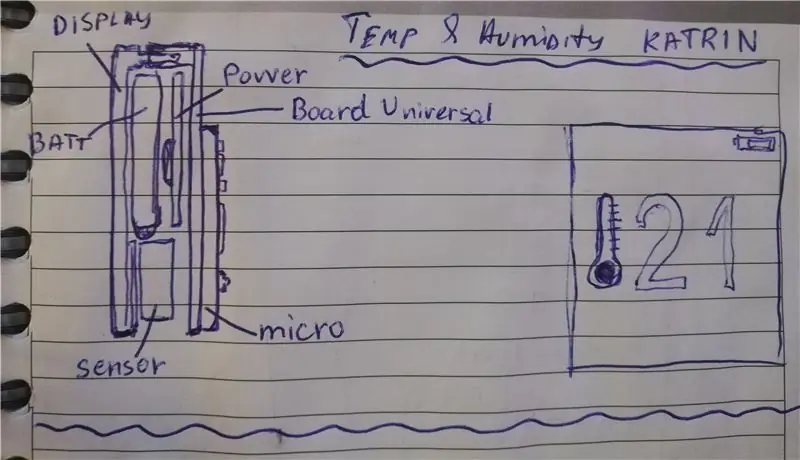 DISPLAY
TEMP & HUMIDITY KATRIN
Power
Board Universal
BATT
21
micro
sensor